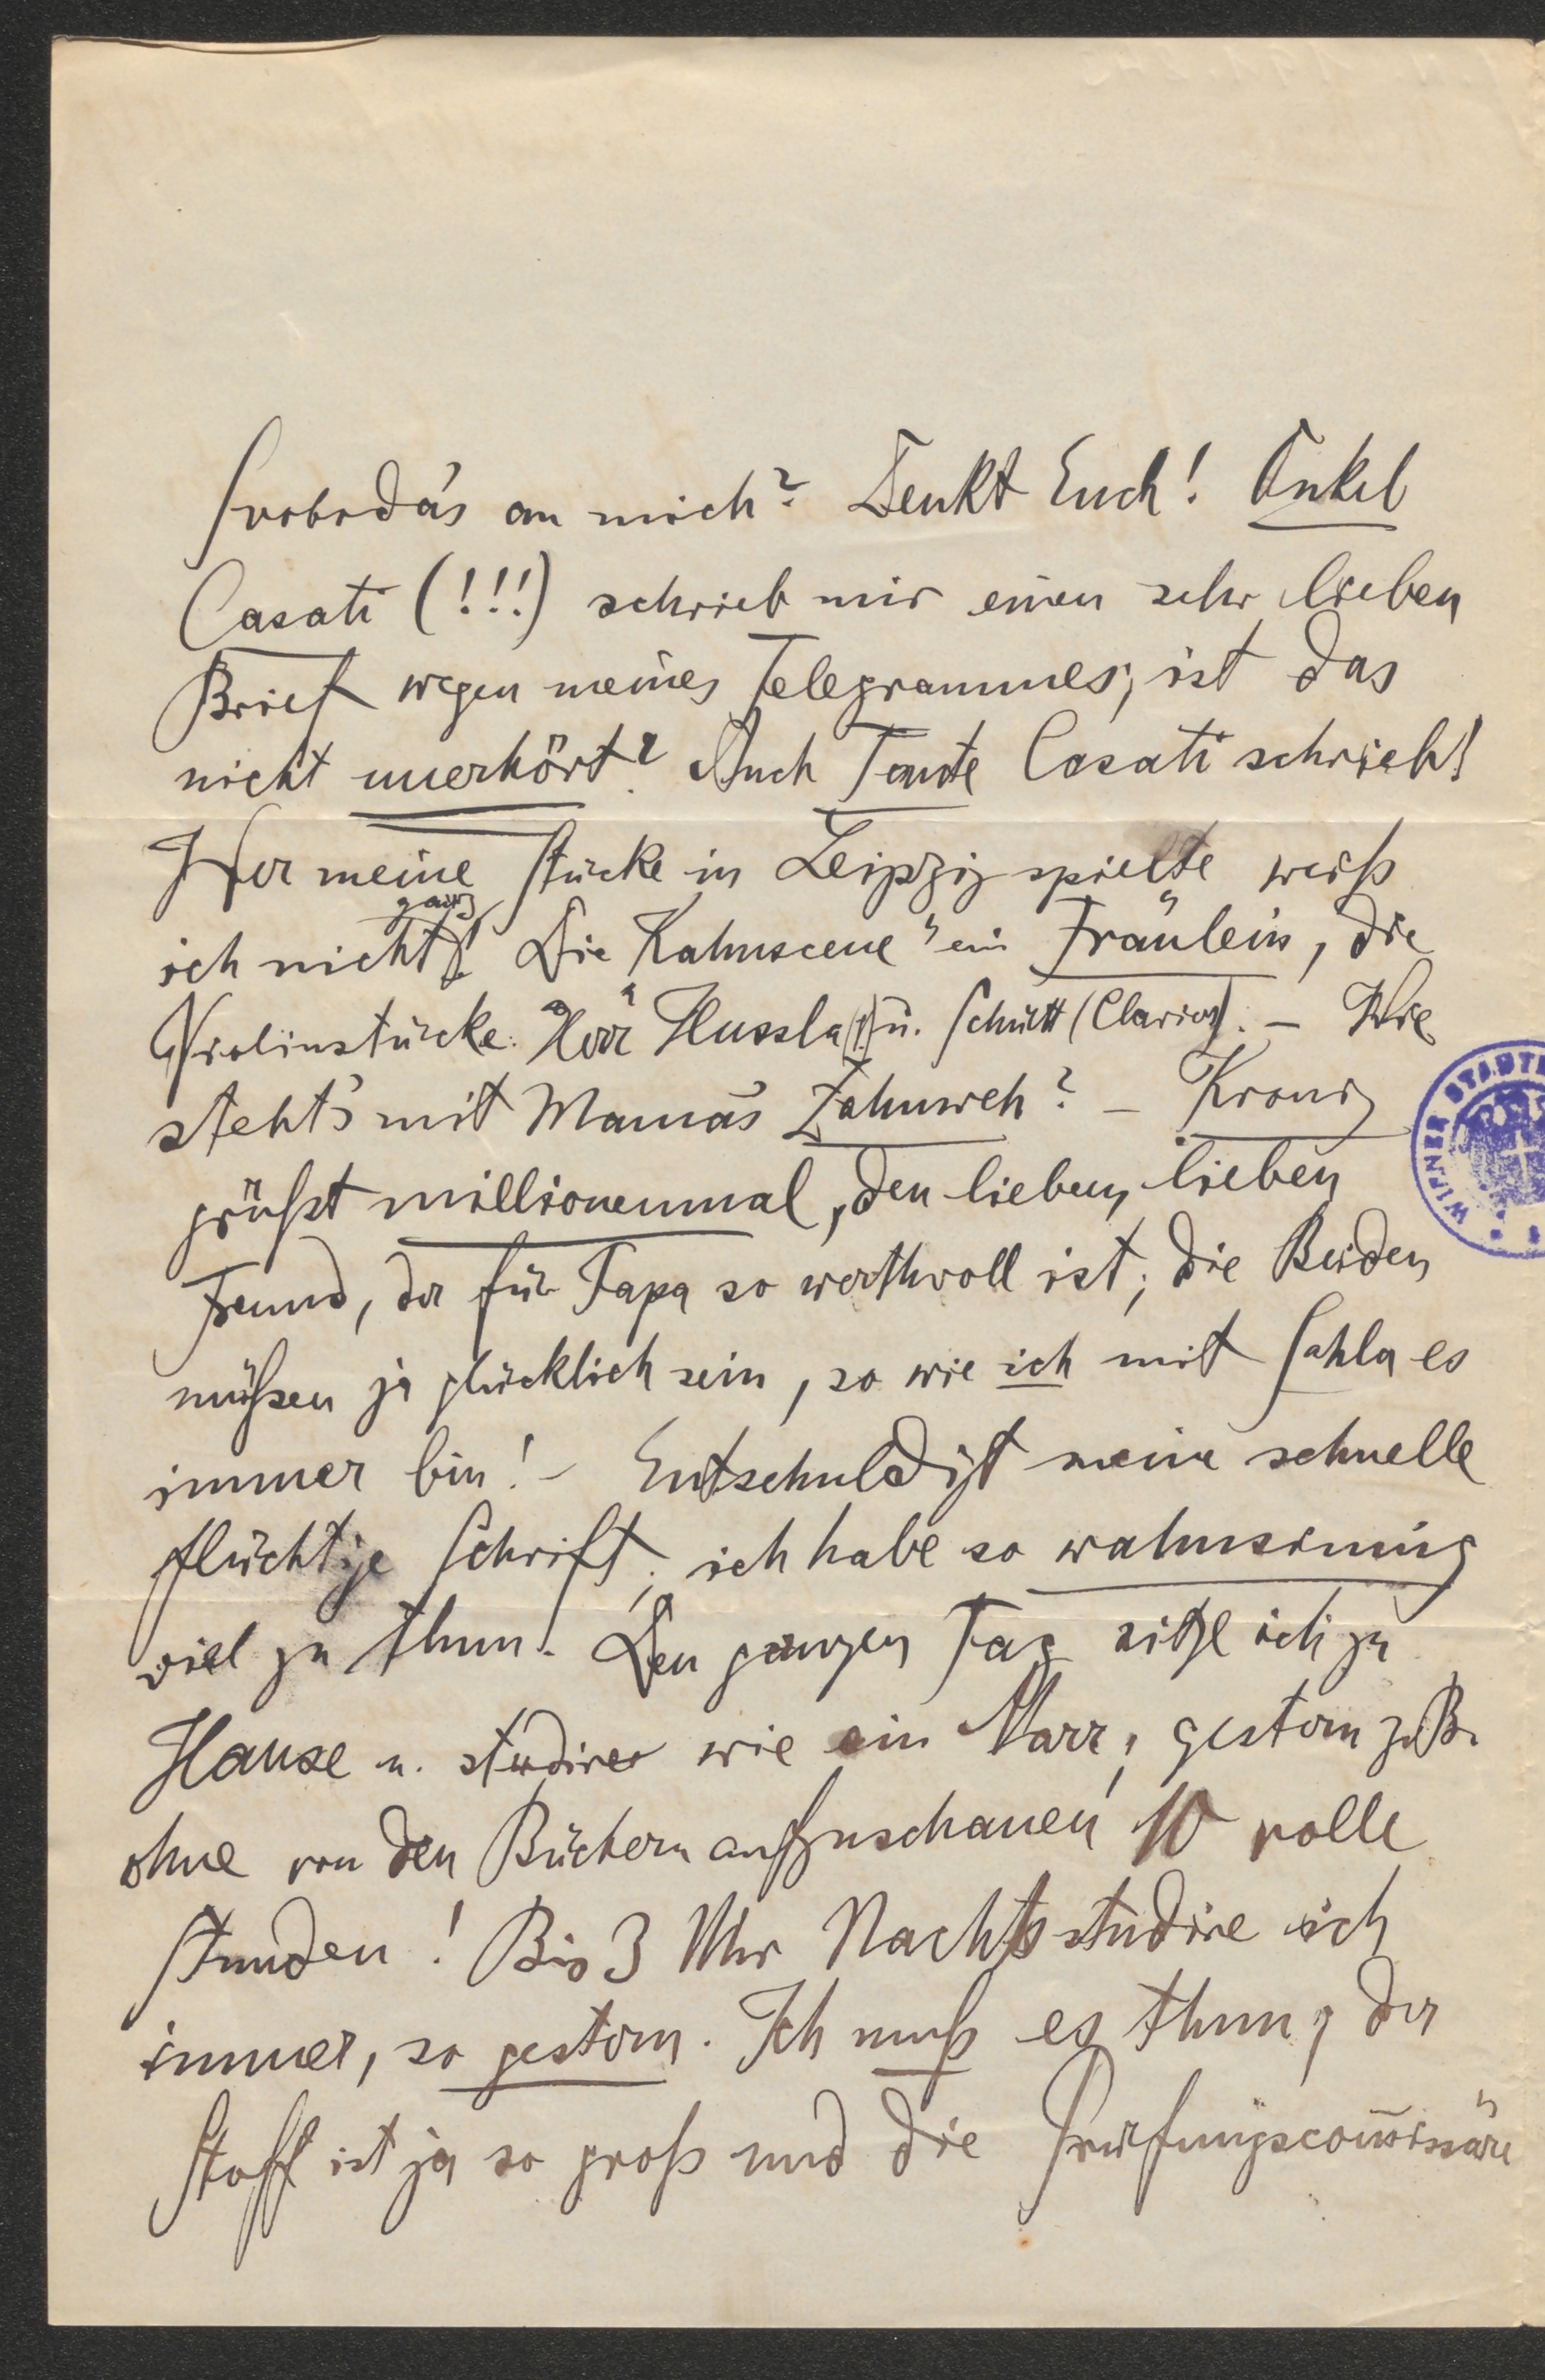 Svoboda's an mich? Denkt Euch! Onkel
Casati (!!!) schrieb mir einen sehr lieben
Brief wegen meines Telegrammes; ist das
nicht unerhört? Auch Tante Casati schrieb!
Wer meine Stücke in Leipzig spielte weiß
ganz
ich nicht! Die "Kahnscene" ein Fräulein, die
Violinstücke: Herr Hussla (!) u. Schütt (Clavier). – Wie
steht's mit Mama's Zahnweh? –
grüßt millionenmal, den lieben, lieben
Freund, der für Papa so werthvoll ist; die Beiden
müßen ja glücklich sein, so wie ich mit Sahla es
immer bin! – Entschuldigt meine schnelle
flüchtige Schrift; ich habe so wahnsinnig
viel zu thun! Den ganzen Tag sitze ich zu
Hause u. studire wie ein Narr, gestern z. B.
ohne von den Büchern aufzuschauen 10 volle
Stunden! Bis 3 Uhr Nachts studire ich
immer, so gestern. Ich muß es thun; der
Stoff ist ja so groß und die Prüfungscom̅issäre
WIENER STADT